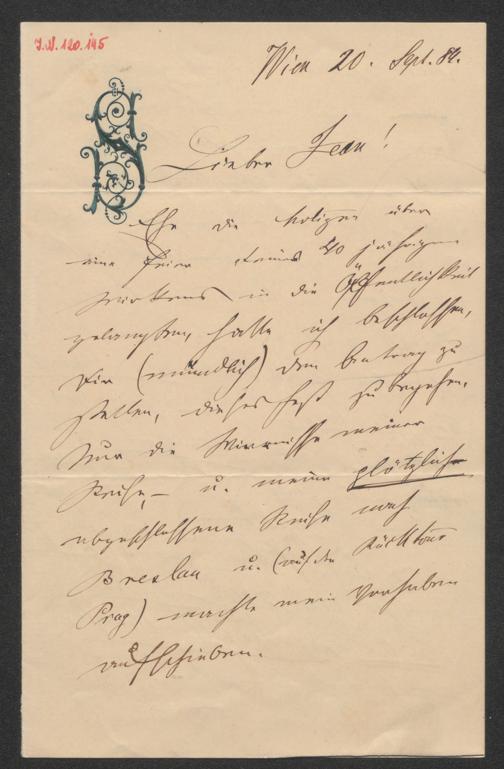 J.N. 120.145
Wien 20. Sept. 84.
Lieber Jean!
Ehe die Notizen über
eine Feier Deines 40 jährigen
Wirkens in die Öffentlichkeit
gelangten, hatte ich beschlossen,
Dir (mündlich) den Antrag zu
stellen, dieses Fest zu begehen.
Nur die Wirrnisse meiner
Reise, – u. meine plötzlich
abgeschlossene Reise nach
Breslau u. (auf der Rücktour
Prag) machte mein Vorhaben
aufschieben.